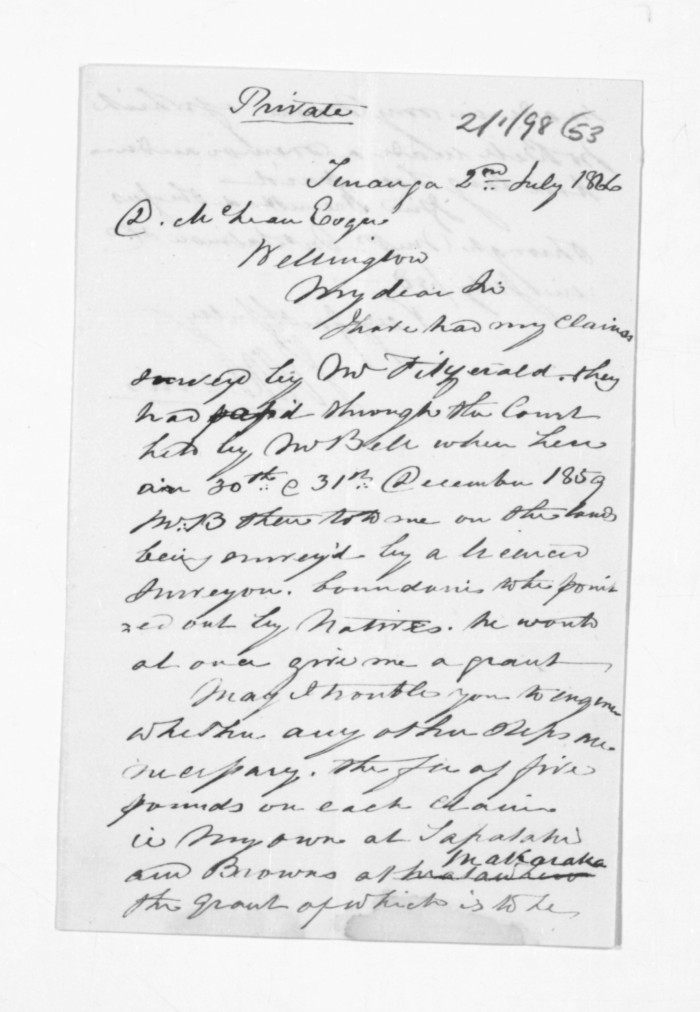 Private
2/1/98 (53
Turanga 2nd July 186
D. McLean Esqre
Wellington
My dear Sir
I have had my claims
survey'd by Mr Fitzgerald. they
had pass'd through the Court
held by Mr Bell when here
on 30th & 31st December 1859
Mr. B then told me on the lands
being survey'd by a licenced
Surveyor. boundaries to be poin
=ted out by Natives. he would
at once give me a grant
May I trouble you to enquire
whether any other steps are
necessary. the fee of five
pounds on each claim
ie My own at Tapatahi
and Browns at Makaraka
the grant of which is to be